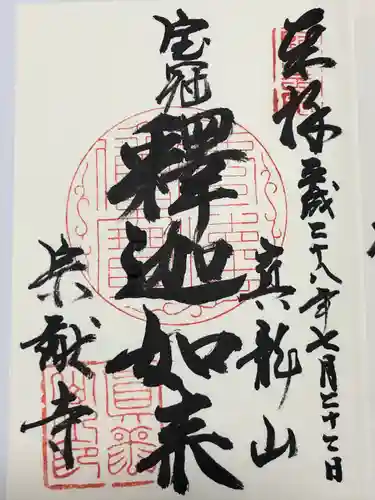 奉拝 平成二十八年七月二十七日
真龍山
宝冠
釋迦如来
宗猷寺